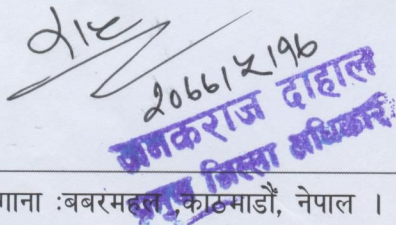 2066/5/16
जनकराज दाहाल
प्रमुख जिल्ला अधिकारी
गाना :बबरमहल ,काठमाडौं, नेपाल ।